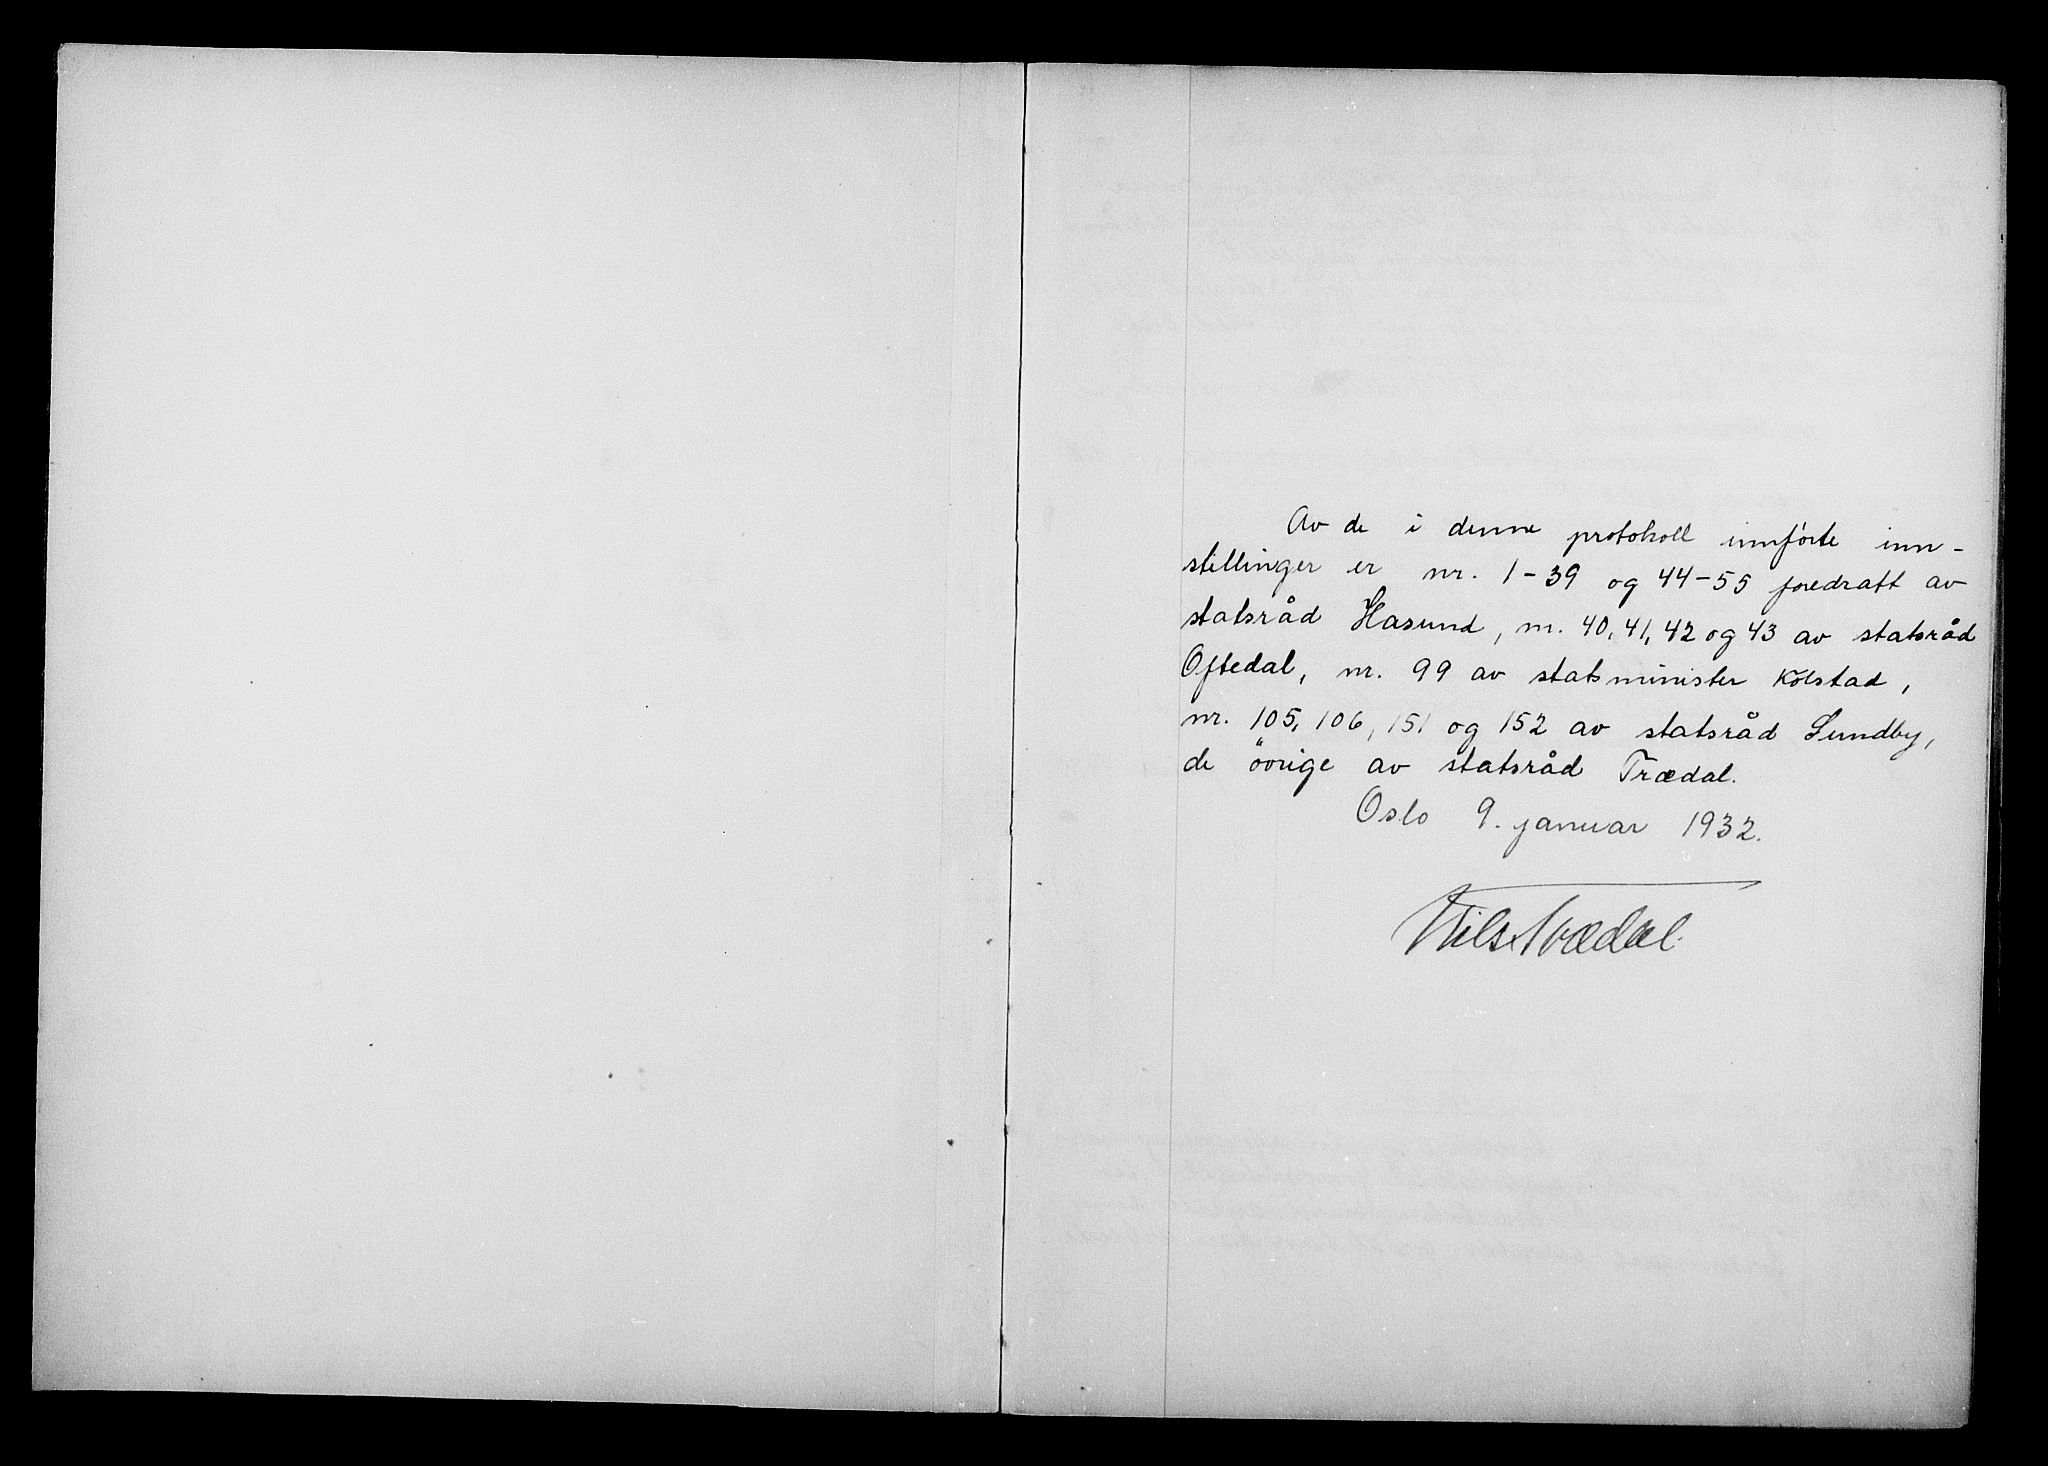 Av de i denne protokoll innførte inn-
stillinger er nr. 1-39 og 44-55 foredratt av
statsråd Hasund, nr. 40, 41, 42 og 43 av statsråd
Oftedal, nr. 99 av statsminister Kolstad,
nr. 105, 106, 151 og 152 av statsråd Sundby,
de övrige av statsråd Trædal.
Oslo 9. januar 1932.
Nils Trædal.